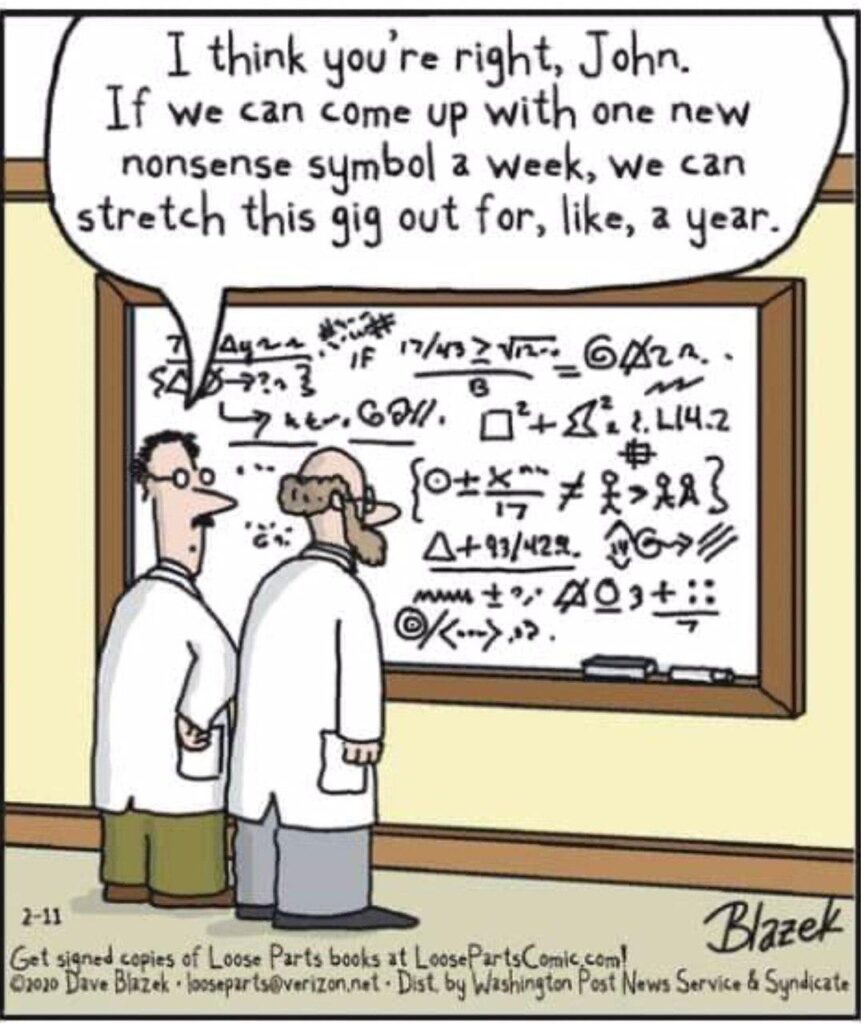 I think you're right, John.
If we can come up with one new
nonsense symbol a week, we can
stretch this gig out for, like, a year.
IF 17/43 ≥
B
17
Δ+93/42
2-11
Blazek
Get signed copies of Loose Parts books at LoosePartsComic.com!
©2020 Dave Blazek • looseparts@verizon.net • Dist. by Washington Post News Service & Syndicate